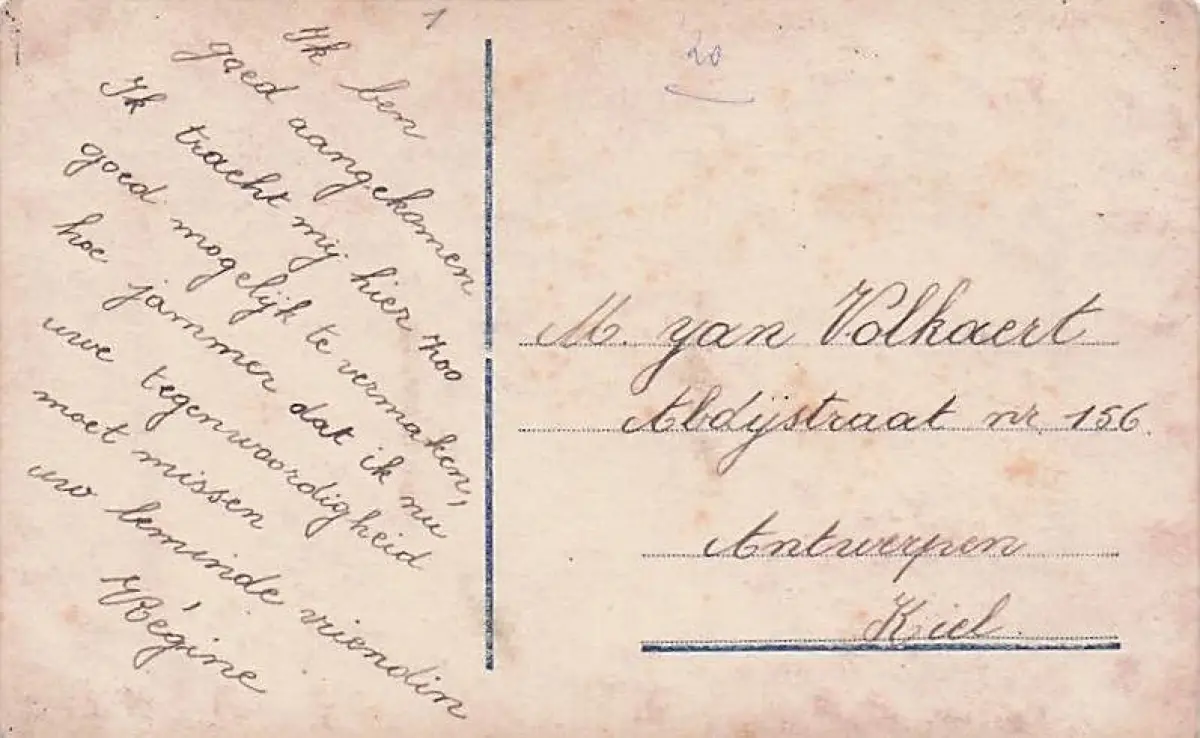 1
Ik ben
goed aangekomen
Ik tracht mij hier zoo
goed mogelijk te vermaken,
hoe jammer dat ik nu
uwe tegenwoordigheid
moet missen
uw beminde vriendin
Régine
20
M. van Volkaert
Abdijstraat nr. 156.
Antwerpen
Kiel.